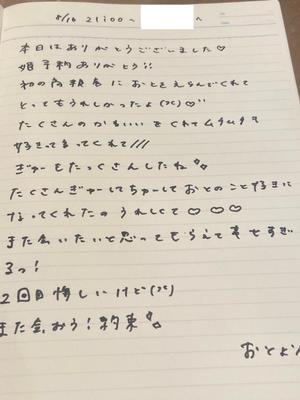 8/16 21:00〜 へ
本日はありがとうございました♡
姫予約ありがとう!!
初の
におとをえらんでくれて
とってもうれしかったよ(
)♡
たくさんのかわいい をくれて
好きって言ってくれて///
ぎゅーもたっくさんしたね
たくさんぎゅーしてちゅーしておとのこと好きに
なってくれたの うれしくて♡♡♡
また会いたいと思ってもらえて
すぎ
るっ!
2回目 悔しいけど(
)
また会おう!約束
おとより